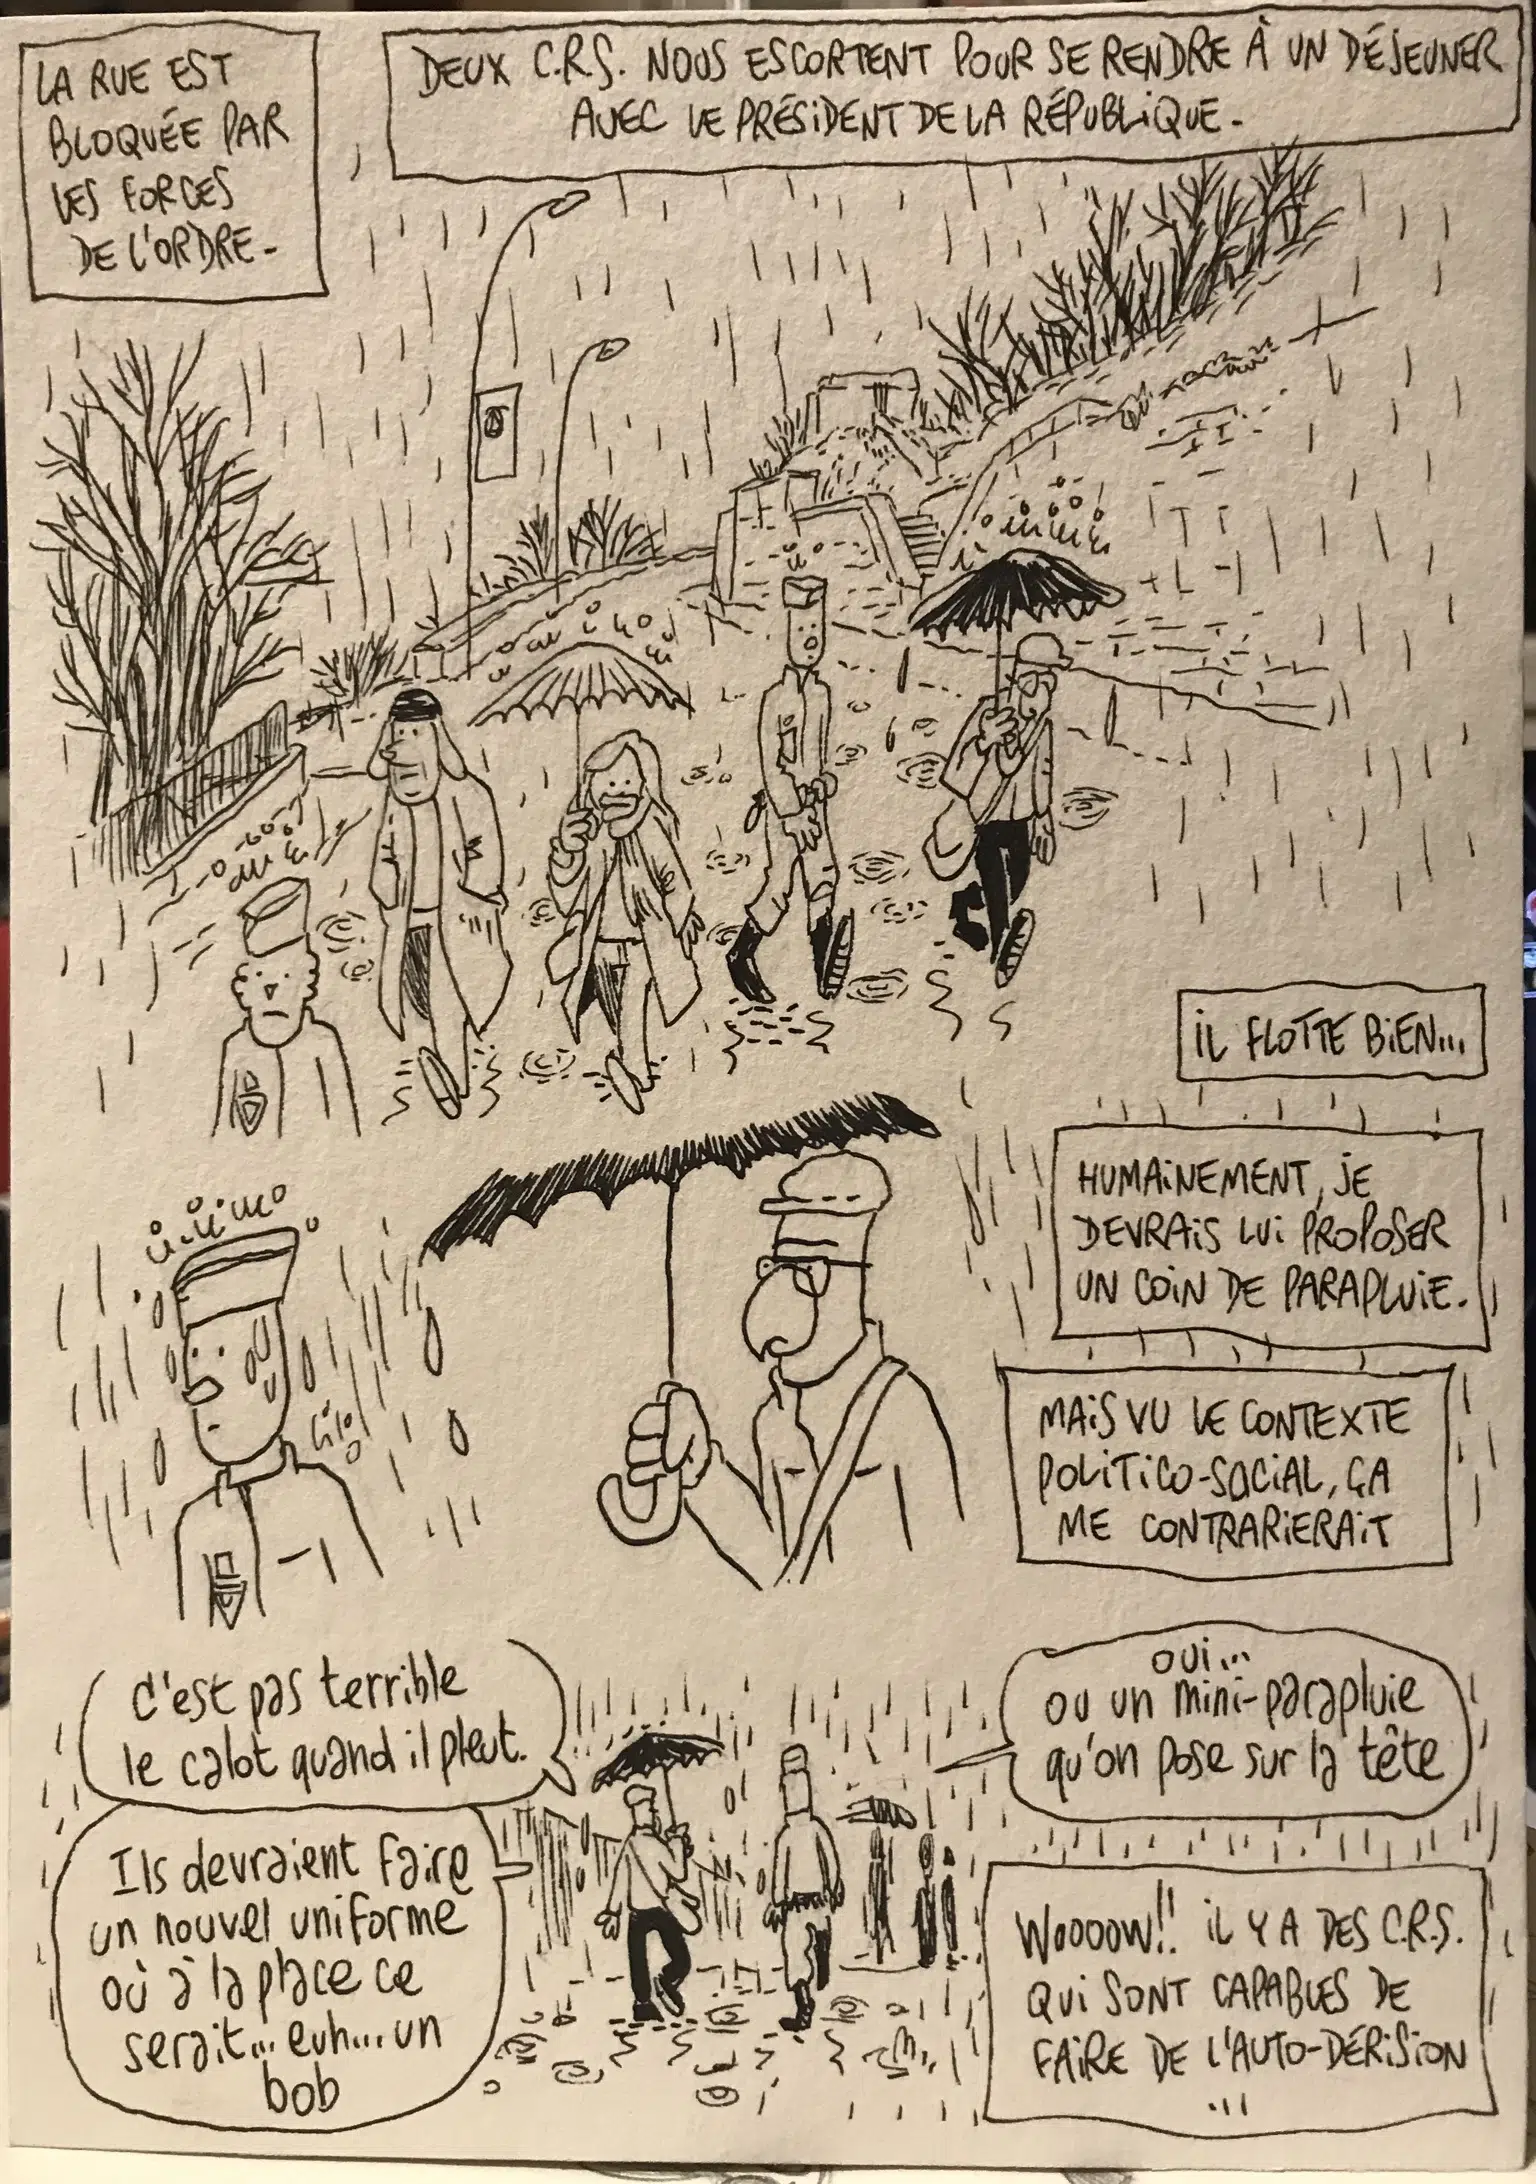 LA RUE EST
BLOQUÉE PAR
LES FORCES
DE L'ORDRE-
DEUX C.R.S. NOUS ESCORTENT POUR SE RENDRE À UN DÉJEUNER
AVEC LE PRÉSIDENT DE LA RÉPUBLIQUE-
IL FLOTTE BIEN...
HUMAINEMENT, JE
DEVRAIS LUI PROPOSER
UN COIN DE PARAPLUIE.
MAIS VU LE CONTEXTE
POLITICO-SOCIAL, ÇA
ME CONTRARIERAIT
C'est pas terrible
le calot quand il pleut.
Ils devraient faire
un nouvel uniforme
où à la place ce
serait... euh... un
bob
oui...
ou un mini-parapluie
qu'on pose sur la tête
WOOOOW!! IL Y A DES C.R.S.
QUI SONT CAPABLES DE
FAIRE DE L'AUTO-DÉRISION
...